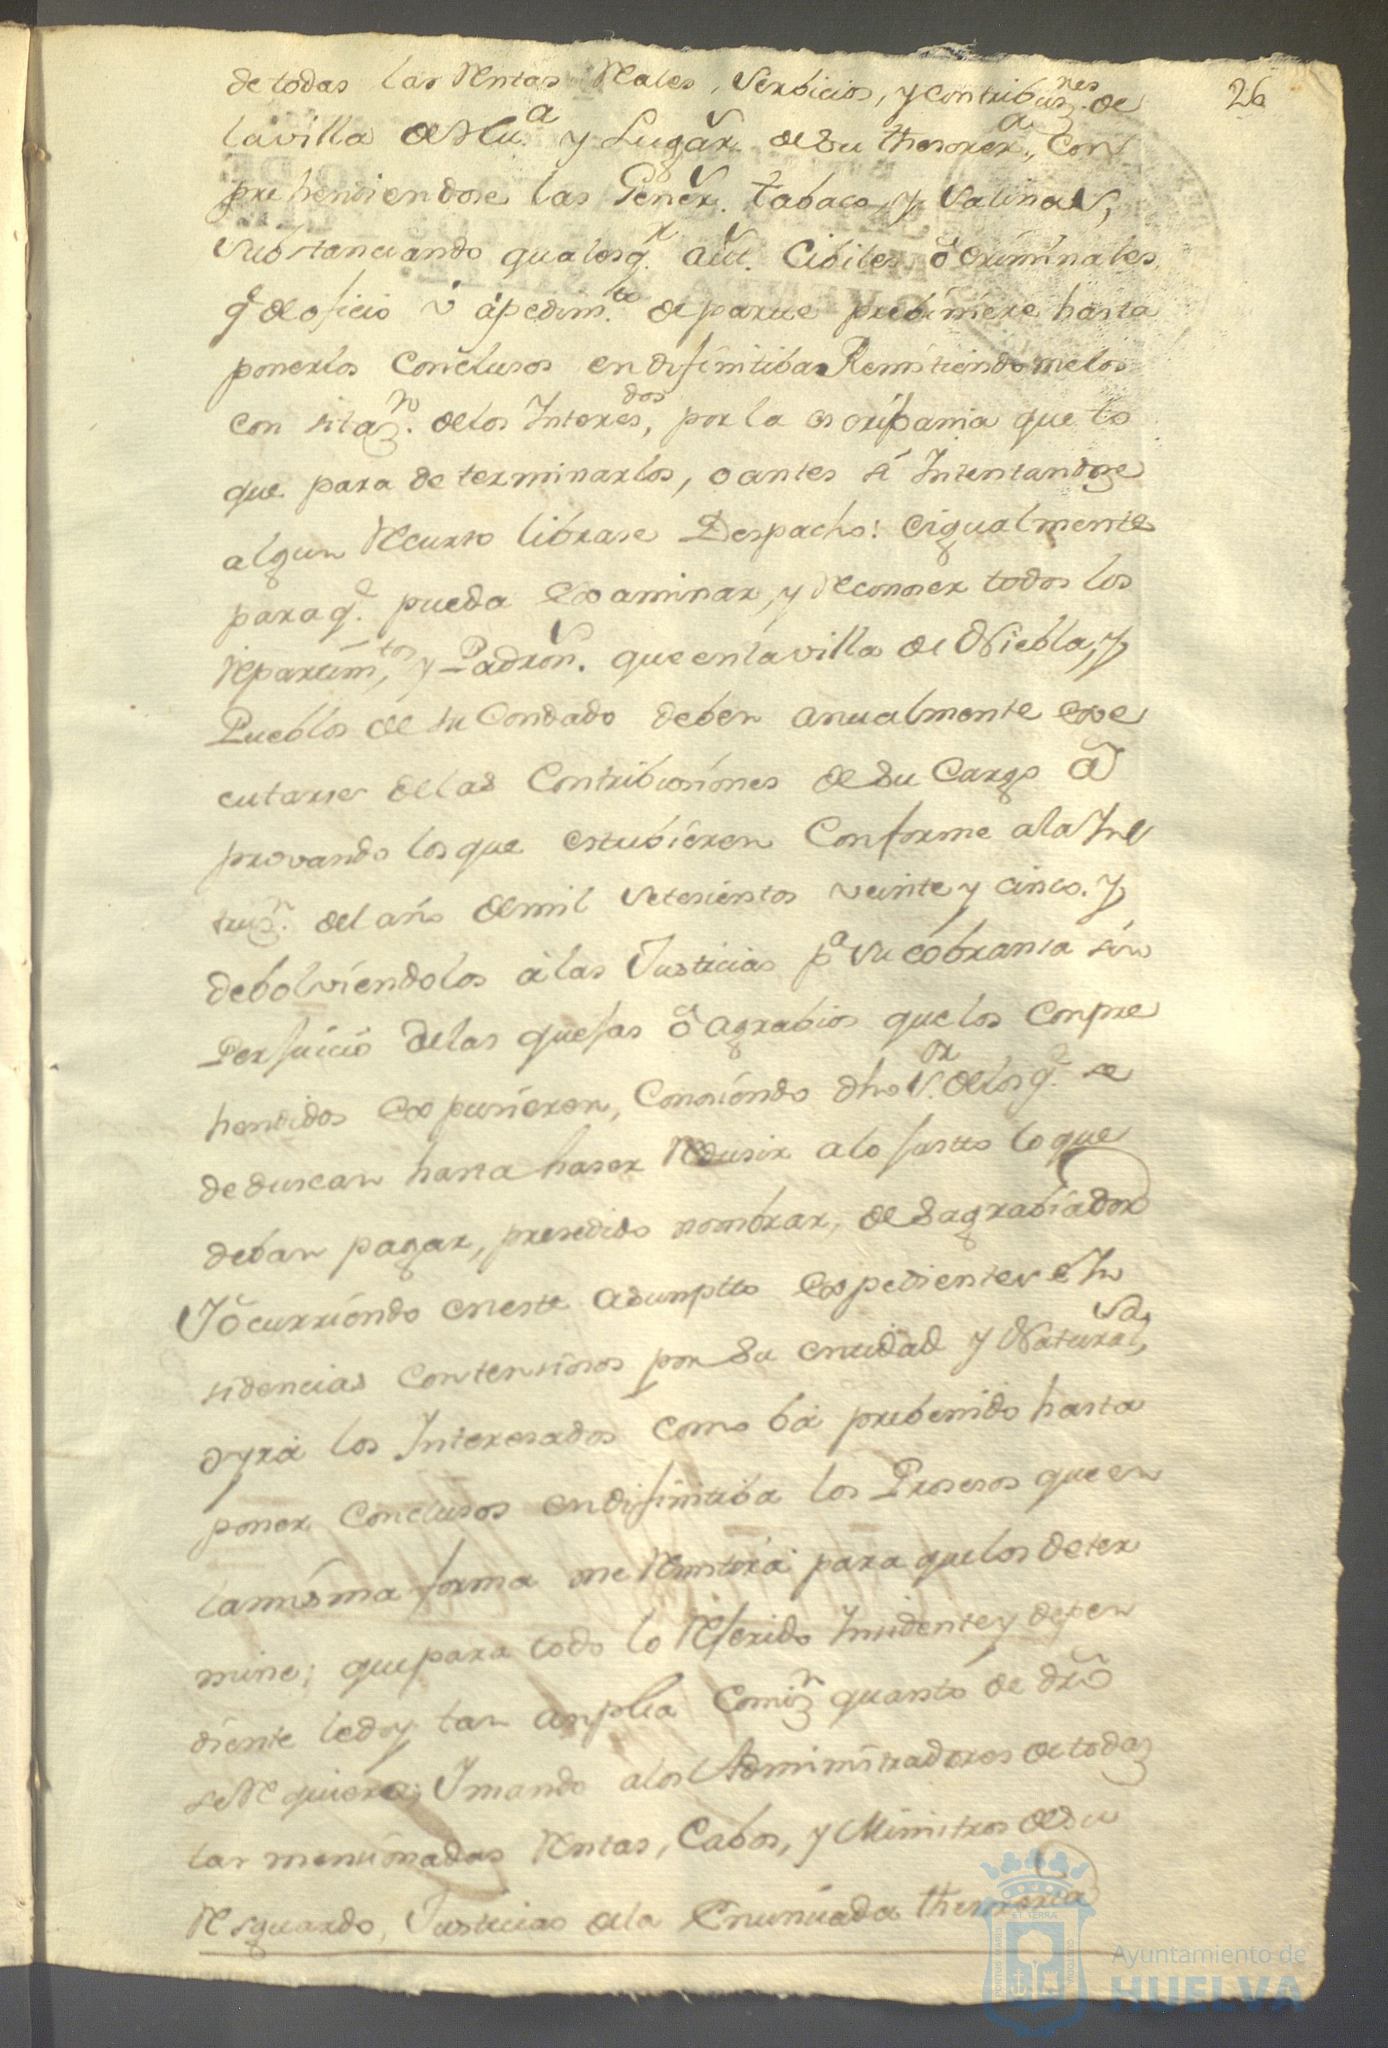 26
de todas las Rentas Reales, Serbicios, y contribuz.nes de
la villa de Hu.a y Lugar.s de su thesorer.a, Con
prehendiendose las Gener.s tabaco, y Salinas,
Substanciando qualesq.r aut.s Cibiles ô Criminales
q.e de oficio û â pedim.to de parte prebiniere hasta
ponerlos Conclusos en difinitiba Remitiendomelos
con sitaz.n de los Interesdos, por la escripania que to
que para determinarlos, o antes si Intentandose
algun Recurso librase Despacho: eigualmente
para q.e pueda examinar, y Reconoser todos los
Repartim.tos, y Padron.s que en la villa de Niebla, y
Pueblos de su Condado deben anualmente exe
cutarse de las Contribusiones de su Cargo â
provando los que estubieren Conforme a la Ins
truz.n del año de mil setesientos veinte y cinco. y
debolviendolos â las Justicias p.a su cobransa sin
Perjuicio de las quejas ô agrabios que los conpre
hendidos expusieren, Conosiendo dho S.or de los q.e se
deduscan hasta haser Redusir a lo justto lo que
deban pagar, presedido nombrar, desagrabiador
Y ôcurriendo en este asumptto expedientes ê In
sidencias contensiosos por su entidad y Naturalsa,
oyrâ los Interesados como bâ prebenido hasta
poner Conclusos en difinitiba los Prosesos que en
la misma forma me Remitirâ para que los deter
mine; que para todo lo Referido Insidente y depen
diente le doy tan anplia Comiz.n quanto de dro
se Requiere; Y mando a los Administradores de todas
las mensionadas Rentas, Cabos, y Ministros de su
Resguardo, Justicias de la Enunciada thesoreria
Ayuntamiento de
HUELVA